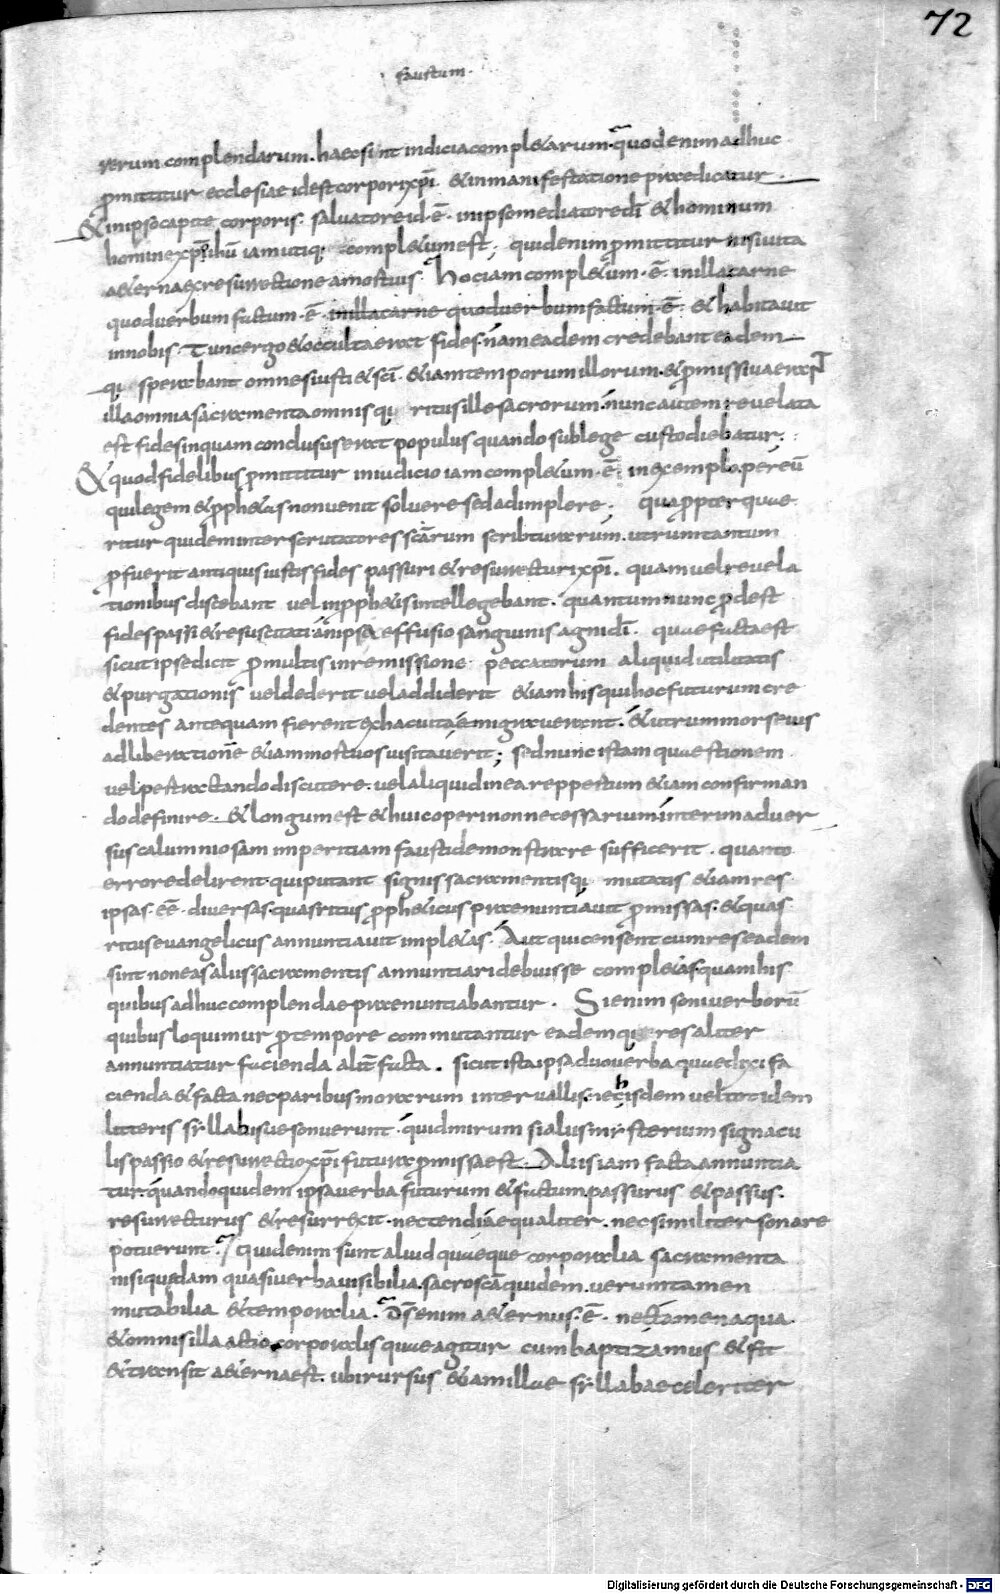 72
faustum.
rerum complendarum. haec sint indicia completarum. quod enim adhuc
promittitur ecclesiae id est corpori xp̄i. & in manifestatione praedicatur
& in ipso capite corporis. saluatore id. ē. in ipso mediatore dī & hominum
homine xp̄o ihū iam utiq; completum est; quid enim promittitur nisi uita
aeterna ex resurrectione a mortuis. hoc iam completum. ē. in illa carne
quod uerbum factum. ē. in illa carne quod uerbum factum. ē. & habitauit
in nobis. Tunc ergo & occulta erat fides. nam eadem credebant eadem
q; sperabant omnes iusti & scī. etiam temporum illorum. & promissiua erant
illa omnia sacramenta omnisq; ritus ille sacrorum. nunc autem reuelata
est fides in quam conclusus erat populus quando sub lege custodiebatur;
& quod fidelibus promittitur in iudicio iam completum. ē. in exemplo. per eū
qui legem & prophetas non uenit soluere sed adimplere; quapropter quae
ritur quidem inter scrutatores scārum scribturarum. utrum tantum
profuerit antiquis iustis fides passuri & resurrecturi xp̄i. quam uel reuela
tionibus discebant uel in prophetis intellegebant. quantum nunc prodest
fides passi & resuscitati. an ipsa effusio sanguinis agni dī. quae facta est
sicut ipse dicit pro multis in remissione peccatorum aliquid utilitatis
& purgationis uel dederit uel addiderit etiam his qui hoc futurum cre
dentes antequam fierent ex hac uita emigrauerant. & utrum mors eius
ad liberatione etiam mortuos uisitauerit; sed nunc istam quaestionem
uel pertractando discutere. uel aliquid in ea reppertum etiam confirman
do definire. & longum est & huic operi non necessarium interim aduer
sus calumniosam imperitiam fausti demonstrare suffecerit. quanto
errore delirent. qui putant signis sacramentisq; mutatis etiam res
ipsas. eē. diuersas. quas ritus propheticus praenuntiauit promissas. & quas
ritus euangelicus annuntiauit impletas. Aut qui censent cum res eadem
sint non eas aliis sacramentis annuntiari debuisse completas quam his
quibus adhuc complendae praenuntiabantur. Si enim soni uerborū
quibus loquimur pro tempore commutantur eademq; res aliter
annuntiatur facienda alit̄ facta. sicut ista ipsa duo uerba quae dixi fa
cienda & facta nec paribus morarum interuallis. nec hisdem uel totidem
litteris syllabisue sonuerunt. quid mirum si aliis mysterium signacu
lis passio & resurrectio xp̄i futura promissa est. Aliis iam facta annuntia
tur. quandoquidem ipsa uerba futurum & factum. passurus & passus.
resurrecturus & resurrexit. nec tendi aequaliter. nec similiter sonare
potuerunt. quid enim sunt aliud quaeque corporalia sacramenta
nisi quędam quasi uerba uisibilia. sacroscā quidem. uerumtamen
mutabilia & temporalia. Ds̄ enim aeternus. ē. nec tamen aqua
& omnis illa actio corporalis quae agitur cum baptizamus & fit
& transit aeterna est. ubi rursus etiam illae syllabae celeriter
Digitalisierung gefördert durch die Deutsche Forschungsgemeinschaft - DFG